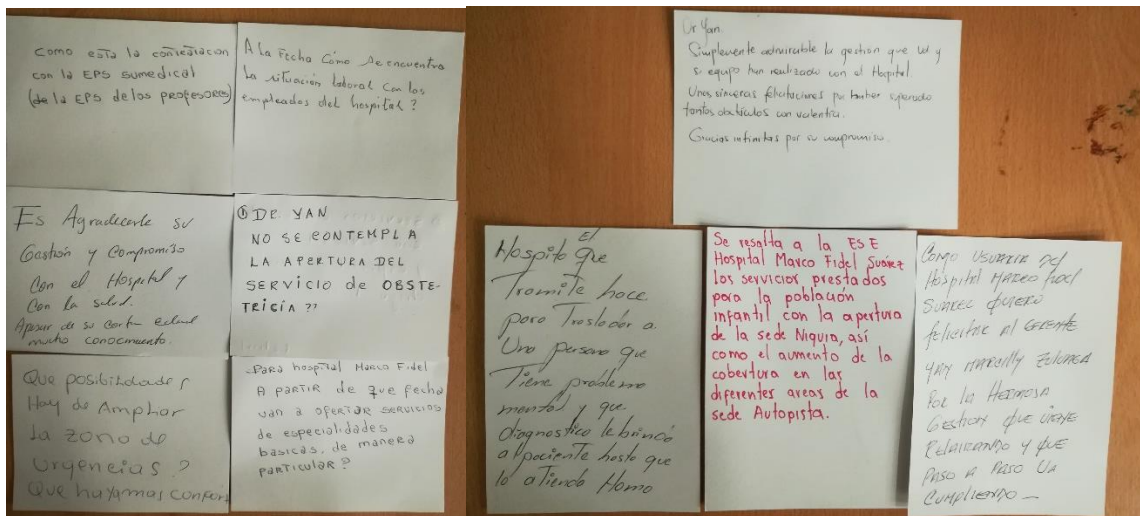 Como esta la contratacion
con la EPS sumedical
(de la EPS de los profesores)
A La Fecha Cómo se encuentra
la situación laboral con los
empleados del hospital?
Es Agradecerle su
Gestión y Compromiso
Con el Hospital y
Con la salud.
Apesar de su corta edad
mucho conocimiento.
① DR YAN
NO SE CONTEMPLA
LA APERTURA DEL
SERVICIO de OBSTE-
TRICIA ??
Que posibilidades
Hay de Ampliar
La zona de
urgencias?
Que hayamas confort
Para hospital Marco Fidel
A partir de que fecha
van a ofertar servicios
de especialidades
basicas, de manera
particular?
Dr Yan.
Simplemente admirable la gestión que Ud y
su equipo han realizado con el Hospital.
Unas sinceras felicitaciones por haber superado
tantos obstáculos con valentía.
Gracias infinitas por su compromiso.
El
Hospital que
Tramite hace
para Trasladar a
Una persona que
Tiene problema
mental y que
diagnostico le brinda
al paciente hasta que
lo atienda Homo
Se resalta a la ESE
Hospital Marco Fidel Suárez
los servicios prestados
para la población
infantil con la apertura
de la sede Niquia, así
como el aumento de la
cobertura en las
diferentes areas de la
sede Autopista.
Como usuaria del
Hospital MARCO Fidel
SUAREZ QUIERO
felicitar al GERENTE
YAN MARCILLY ZULUAGA
Por la Hermosa
Gestion que viene
Realizando y que
PASO A PASO VA
Cumpliendo —